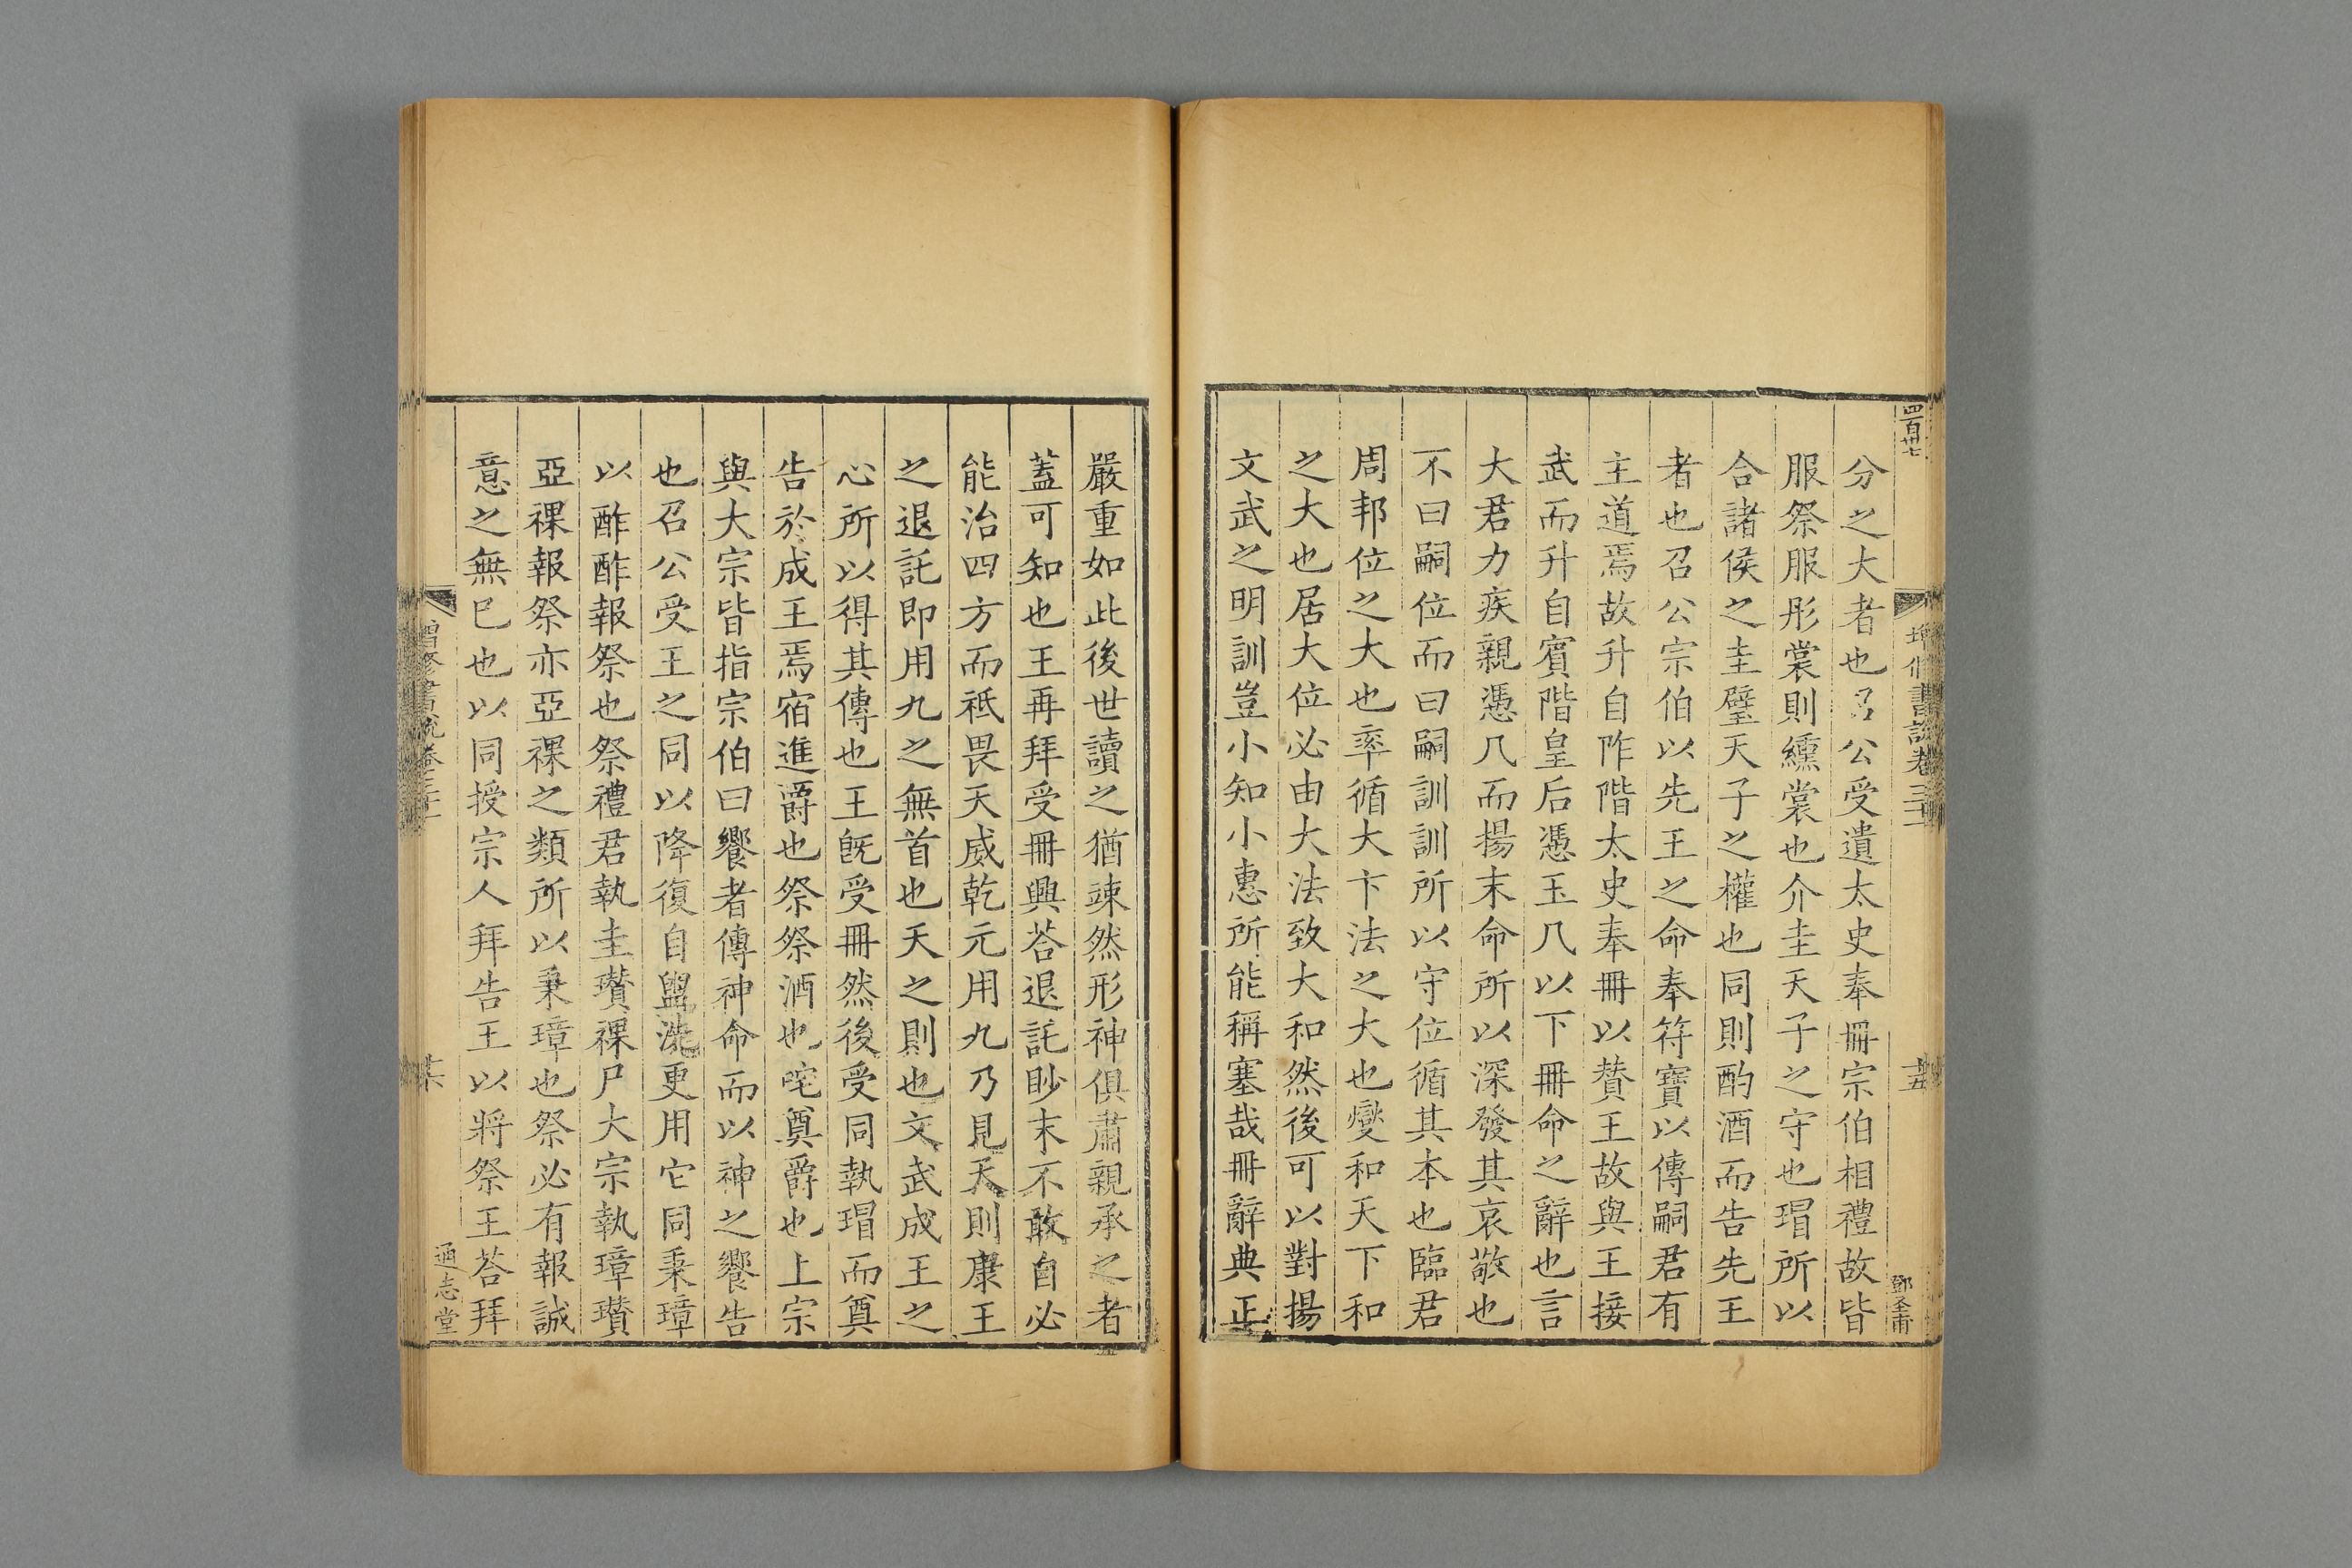 四百卅七
書說卷三十一
十五
鄧圣甫
分之大者也召公受遺太史奉冊宗伯相禮故皆
服祭服彤裳則纁裳也介圭天子之守也瑁所以
合諸侯之圭璧天子之權也同則酌酒而告先王
者也召公宗伯以先王之命奉符寶以傳嗣君有
主道焉故升自阼階太史奉冊以贊王故與王接
武而升自賓階皇后憑玉几以下冊命之辭也言
大君力疾親憑几而揚末命所以深發其哀敬也
不曰嗣位而曰嗣訓訓所以守位循其本也臨君
周邦位之大也率循大卞法之大也燮和天下和
之大也居大位必由大法致大和然後可以對揚
文武之明訓豈小知小惠所能稱塞哉冊辭典正
嚴重如此後世讀之猶竦然形神俱肅親承之者
蓋可知也王再拜受冊興荅退託眇末不敢自必
能治四方而祗畏天威乾元用九乃見天則康王
之退託即用九之無首也天之則也文武成王之
心所以得其傳也王旣受冊然後受同執瑁而奠
告於成王焉宿進爵也祭祭酒也咤奠爵也上宗
與大宗皆指宗伯曰饗者傳神命而以神之饗告
也召公受王之同以降復自盥洗更用它同秉璋
以酢酢報祭也祭禮君執圭瓚祼尸大宗執璋瓚
亞祼報祭亦亞祼之類所以秉璋也祭必有報誠
意之無已也以同授宗人拜告王以將祭王荅拜
增修書說卷三十一
十六
通志堂